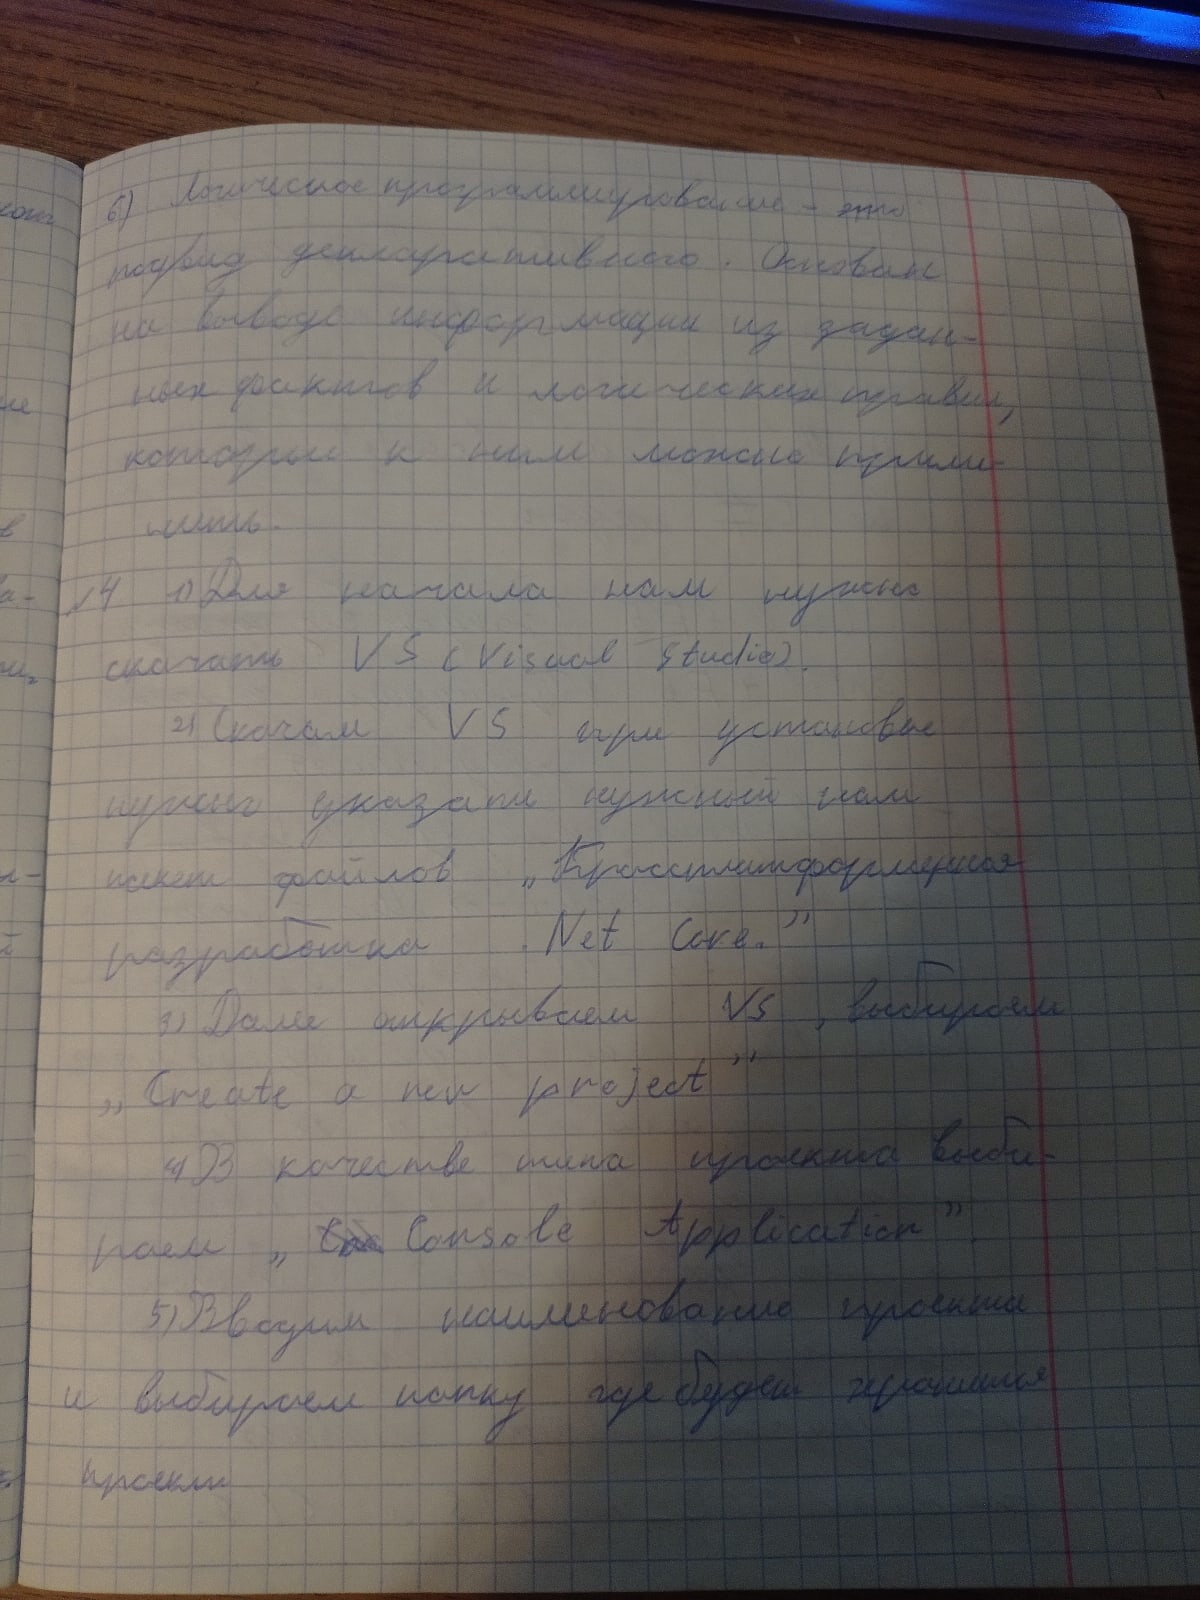 6) Логическое программирование - это
подвид декларативного. Основан
на выводе информации из задан-
ных фактов и логических правил,
которые к ним можно приме-
нить.
№4 1) Для начала нам нужно
скачать VS (Visual Studio).
2) Скачам VS при установке
нужно указать нужный нам
пакет файлов „Кроссплатформенная
разработка .Net Core.”
3) Далее открываем VS, выбираем
„Create a new project”
4) В качестве типа проекта выби-
раем „Console Application”.
5) Вводим наименование проекта
и выбираем папку где будет храниться
проект